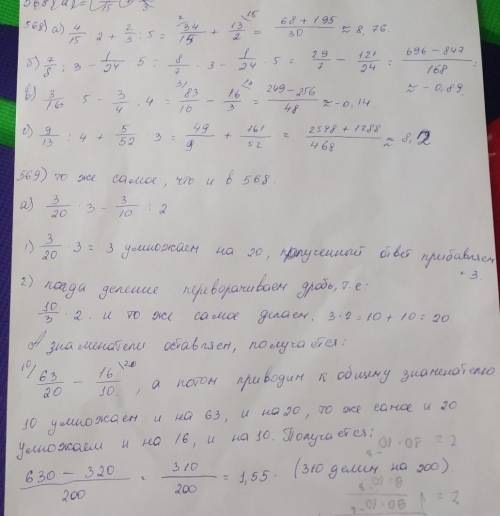 568) а) 4/15 · 2 + 2/3 : 5 = 34/15 + 13/2 = 68 + 195/30 ≈ 8,76.
б) 7/8 : 3 - 1/24 · 5 = 8/7 · 3 - 1/24 · 5 = 29/7 - 121/24 = 696 - 847/168 = ≈ -0,89.
в) 3/16 · 5 - 3/4 · 4 = 83/16 - 16/3 = 249 - 256/48 ≈ -0,14
г) 9/13 : 4 + 5/52 · 3 = 49/9 + 161/52 = 2548 + 1288/468 ≈ 8,2
569) то же самое, что и в 568.
а) 3/20 · 3 - 3/10 : 2
1) 3/20 · 3 = 3 умножаем на 20, полученный ответ прибавляем 3.
2) когда деление переворачиваем дробь, т.е.
10/3 · 2. и то же самое делаем. 3 · 2 = 10 + 10 = 20
А знаменатели оставляем, получается:
63/20 - 16/10, а потом приводим к общему знаменателю
10 умножаем и на 63, и на 20, то же самое и 20
умножаем и на 16, и на 10. Получается:
630 - 320/200 = 310/200 = 1,55. (310 делим на 200)